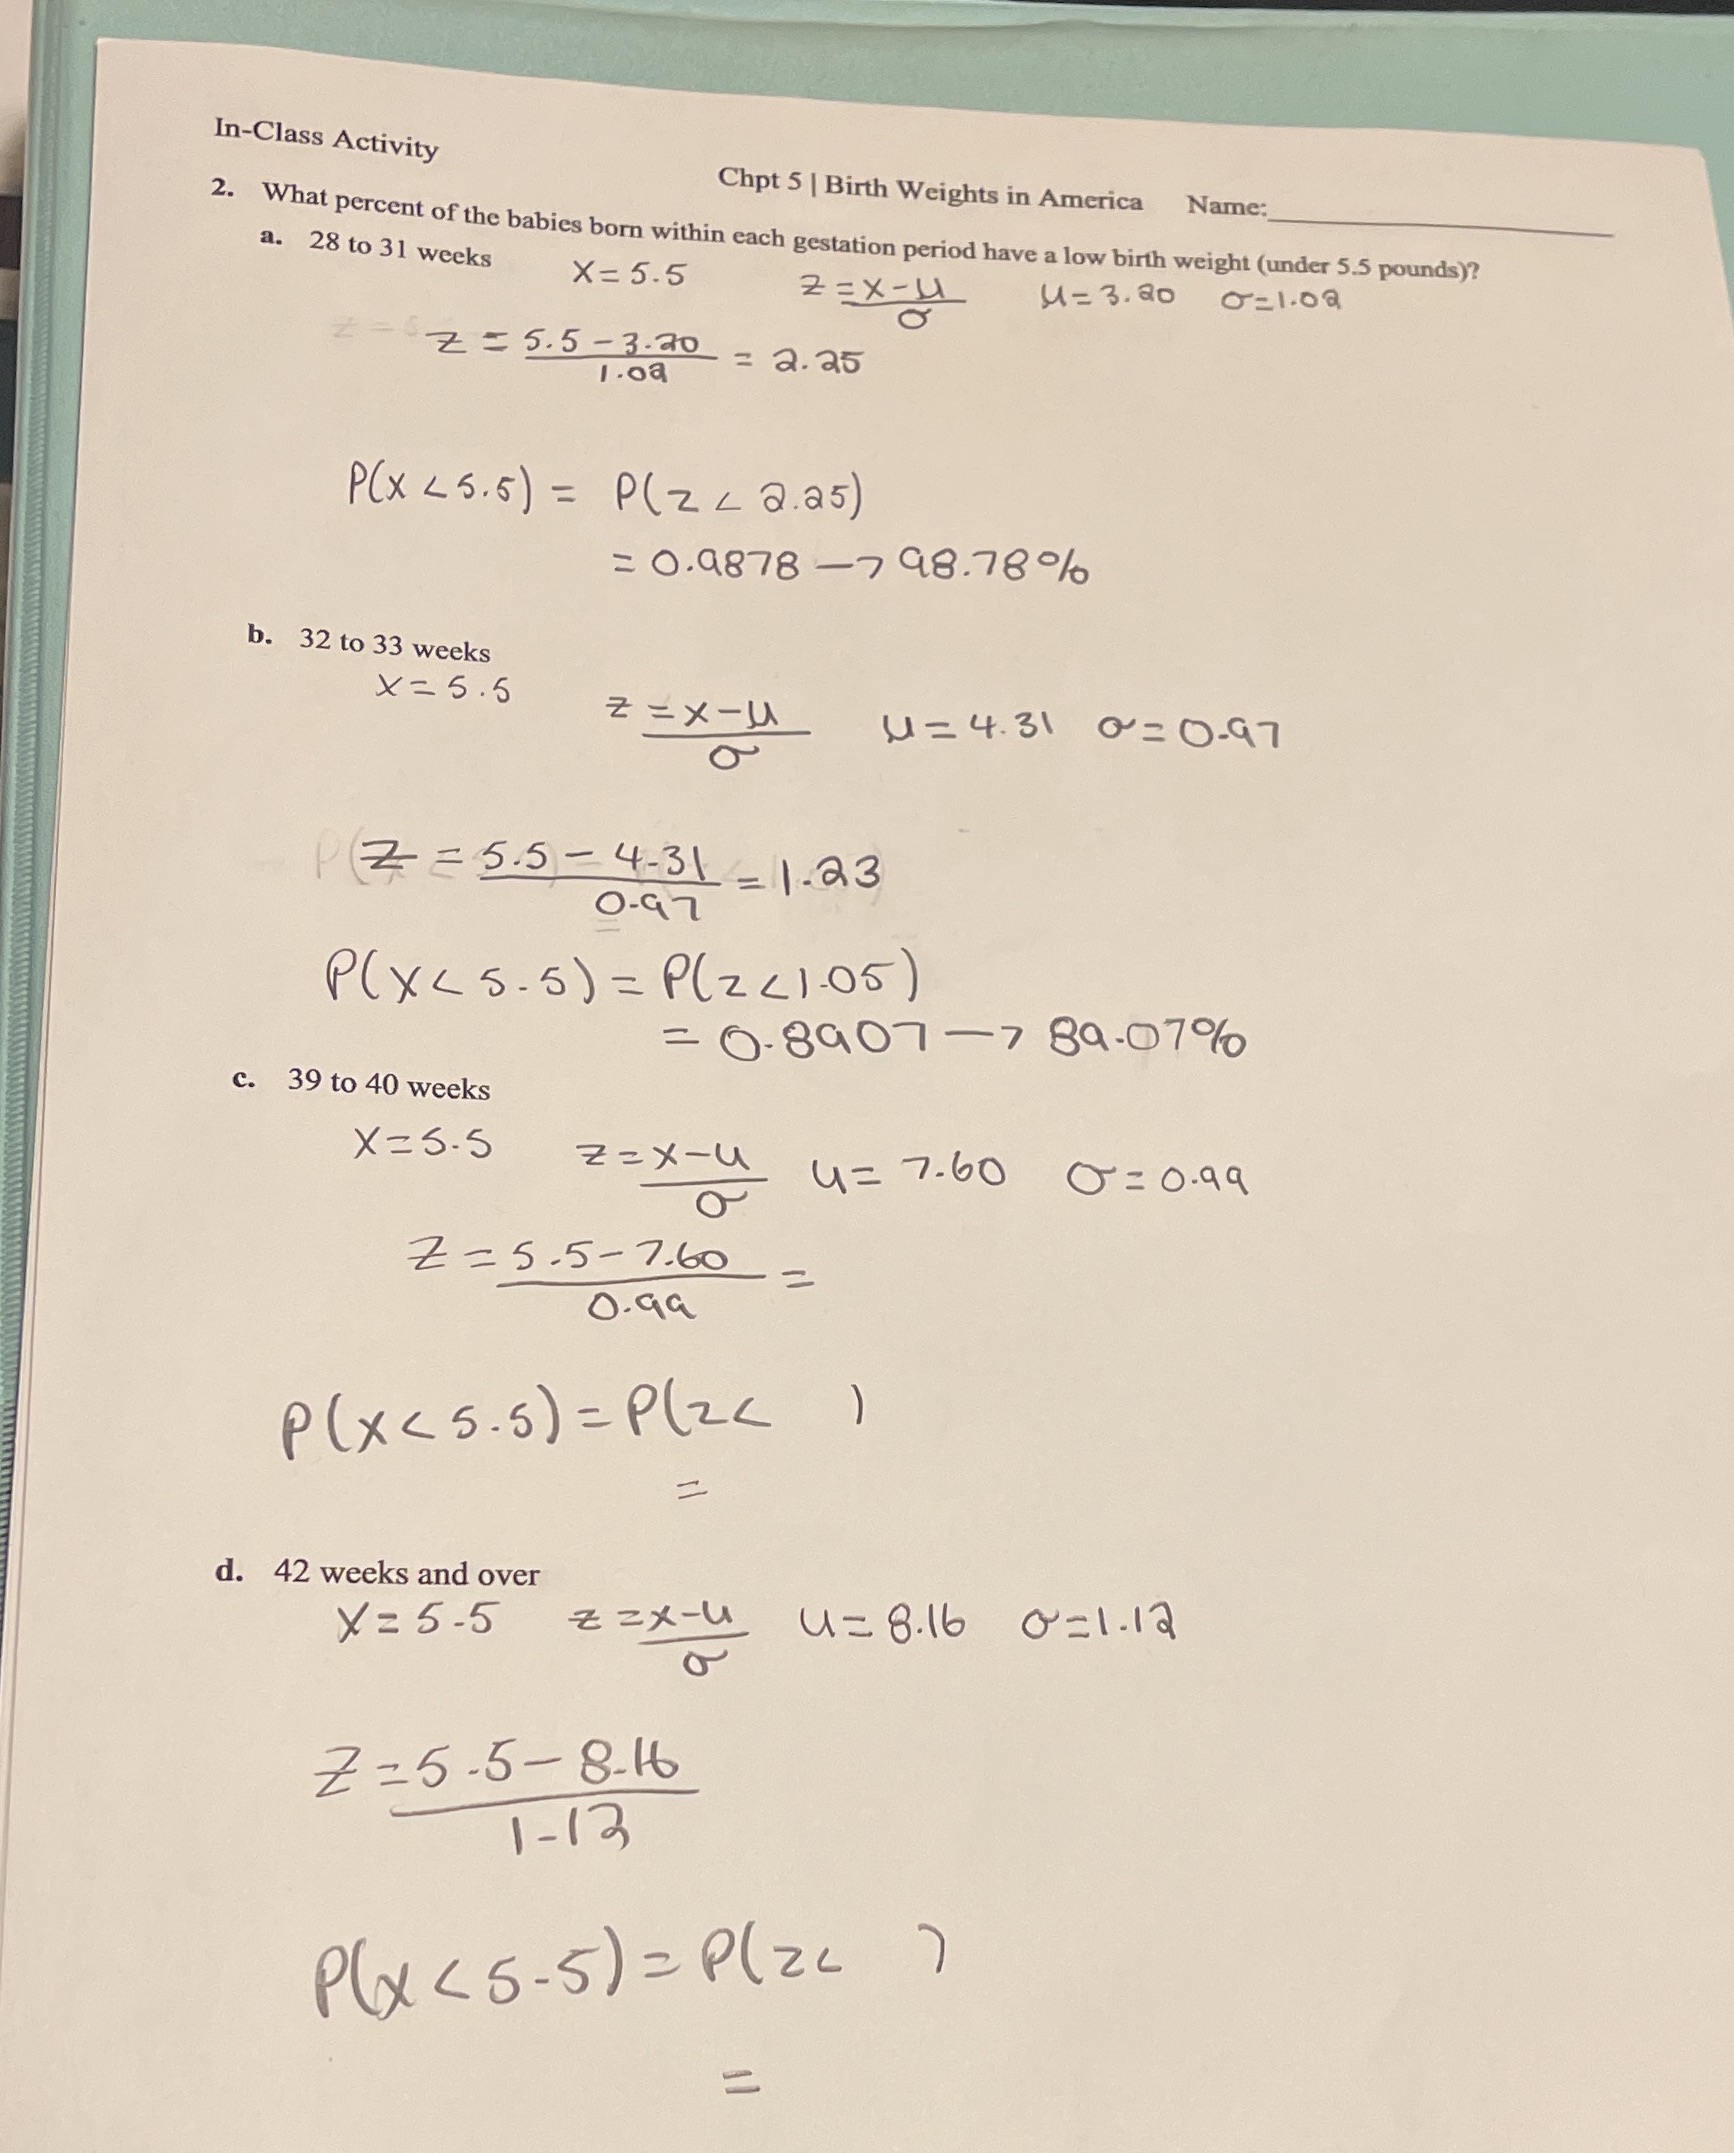 In-Class Activity
Chpt 5 | Birth Weights in America Name:
2. What percent of the babies born within each gestation period have a low birth weight (under 5.5 pounds)?
a. 28 to 31 weeks
x = 5.5 z = x - μ / σ μ = 3.20 σ = 1.02
z = 5.5 - 3.20 / 1.02 = 2.25
P(x < 5.5) = P(z < 2.25)
= 0.9878 → 98.78%
b. 32 to 33 weeks
x = 5.5 z = x - μ / σ μ = 4.31 σ = 0.97
z = 5.5 - 4.31 / 0.97 = 1.23
P(x < 5.5) = P(z < 1.05)
= 0.8907 → 89.07%
c. 39 to 40 weeks
x = 5.5 z = x - μ / σ μ = 7.60 σ = 0.99
z = 5.5 - 7.60 / 0.99 =
P(x < 5.5) = P(z < )
=
d. 42 weeks and over
x = 5.5 z = x - μ / σ μ = 8.16 σ = 1.12
z = 5.5 - 8.16 / 1.12
P(x < 5.5) = P(z < )
=